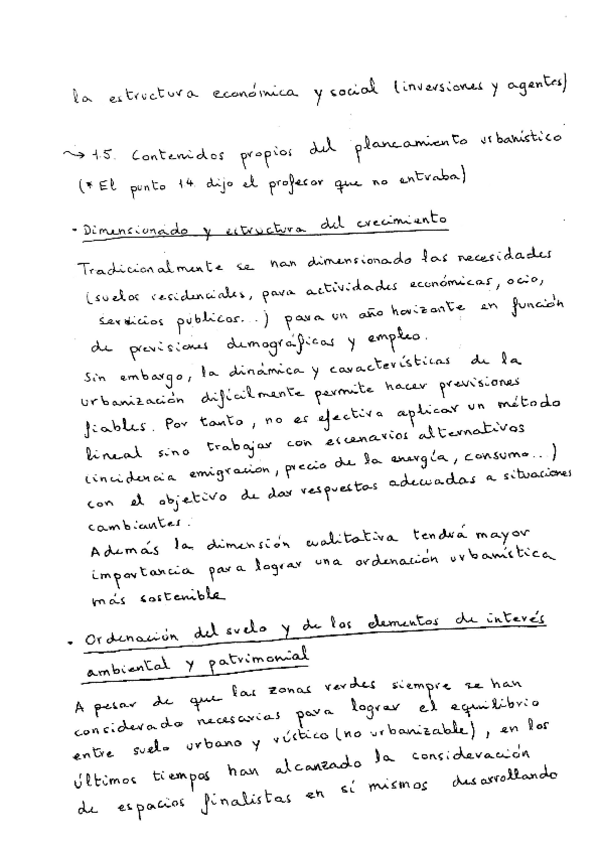 la estructura económica y social (inversiones y agentes)
~> 1.5. Contenidos propios del planeamiento urbanístico
(* El punto 1.4 dijo el profesor que no entraba)
· Dimensionado y estructura del crecimiento
Tradicionalmente se han dimensionado las necesidades
(suelos residenciales, para actividades económicas, ocio,
servicios públicos...) para un año horizonte en función
de previsiones demográficas y empleo.
Sin embargo, la dinámica y características de la
urbanización difícilmente permite hacer previsiones
fiables. Por tanto, no es efectiva aplicar un método
lineal sino trabajar con escenarios alternativos
(incidencia emigración, precio de la energía, consumo...)
con el objetivo de dar respuestas adecuadas a situaciones
cambiantes.
Además la dimensión cualitativa tendrá mayor
importancia para lograr una ordenación urbanística
más sostenible
· Ordenación del suelo y de los elementos de interés
ambiental y patrimonial
A pesar de que las zonas verdes siempre se han
considerado necesarias para lograr el equilibrio
entre suelo urbano y rústico (no urbanizable), en los
últimos tiempos han alcanzado la consideración
de espacios finalistas en sí mismos desarrollando